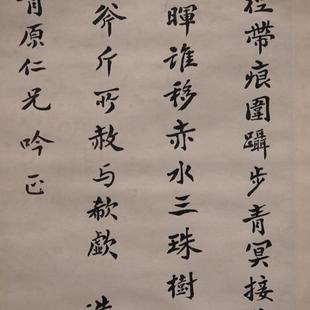 帶痕圍躡步青冥接
暉誰移赤水三珠樹
斧斤所赦与欷歔
青原仁兄吟正